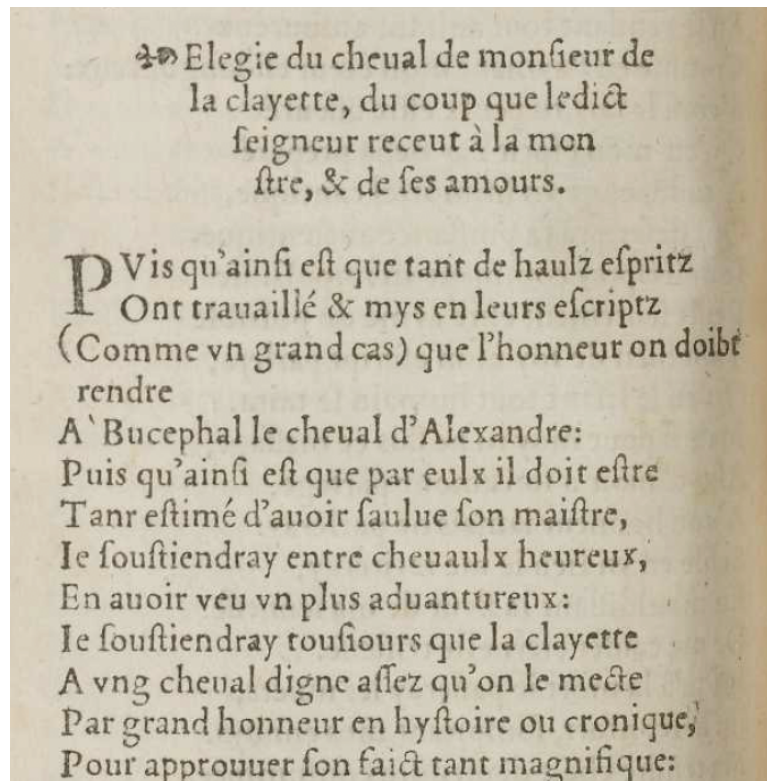 Elegie du cheual de monſieur de
la clayette, du coup que ledict
ſeigneur receut à la mon
ſtre, & de ſes amours.
PVis qu'ainſi eſt que tant de haulz eſpritz
Ont trauaillé & mys en leurs eſcriptz
(Comme vn grand cas) que l'honneur on doibt
rendre
A` Bucephal le cheual d'Alexandre:
Puis qu'ainſi eſt que par eulx il doit eſtre
Tanr eſtimé d'auoir ſaulue ſon maiſtre,
Ie ſouſtiendray entre cheuaulx heureux,
En auoir veu vn plus aduantureux:
Ie ſouſtiendray touſiours que la clayette
A vng cheual digne aſſez qu'on le mecte
Par grand honneur en hyſtoire ou cronique,
Pour approuuer ſon faict tant magnifique: